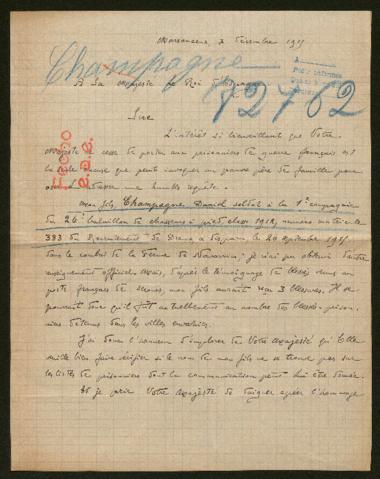 3 Décembre 1915
Champagne
A Sa Majesté le Roi d'Espagne
72762
Sire
L'intérêt si bienveillant que Votre
Majesté ne cesse de porter aux prisonniers de guerre français est
la seule excuse que peut invoquer un grand père de famille pour
une humble requête.
Mon fils, Champagne Daniel soldat à la 1e compagnie
du 26e bataillon de chasseurs à pied, classe 1912, numéro matricule
383 du Recrutement de a disparu, le 26 septembre 1915
dans le combat de la ferme de Navarin, je n'ai pu obtenir d'autre
renseignement officiel mais, d'après le témoignage de blessés dans un
poste français de secours, mon fils aurait reçu 3 blessures. Il se
pourrait donc qu'il fût actuellement au nombre des blessés-prison-
niers détenus dans les villes envahies.
J'ai donc l'honneur d'implorer de Votre Majesté qu'Elle
veuille bien faire vérifier si le nom de mon fils ne se trouve pas sur
les listes de prisonniers dont la communication peut lui être donnée.
Et je prie Votre Majesté de daigner agréer l'hommage